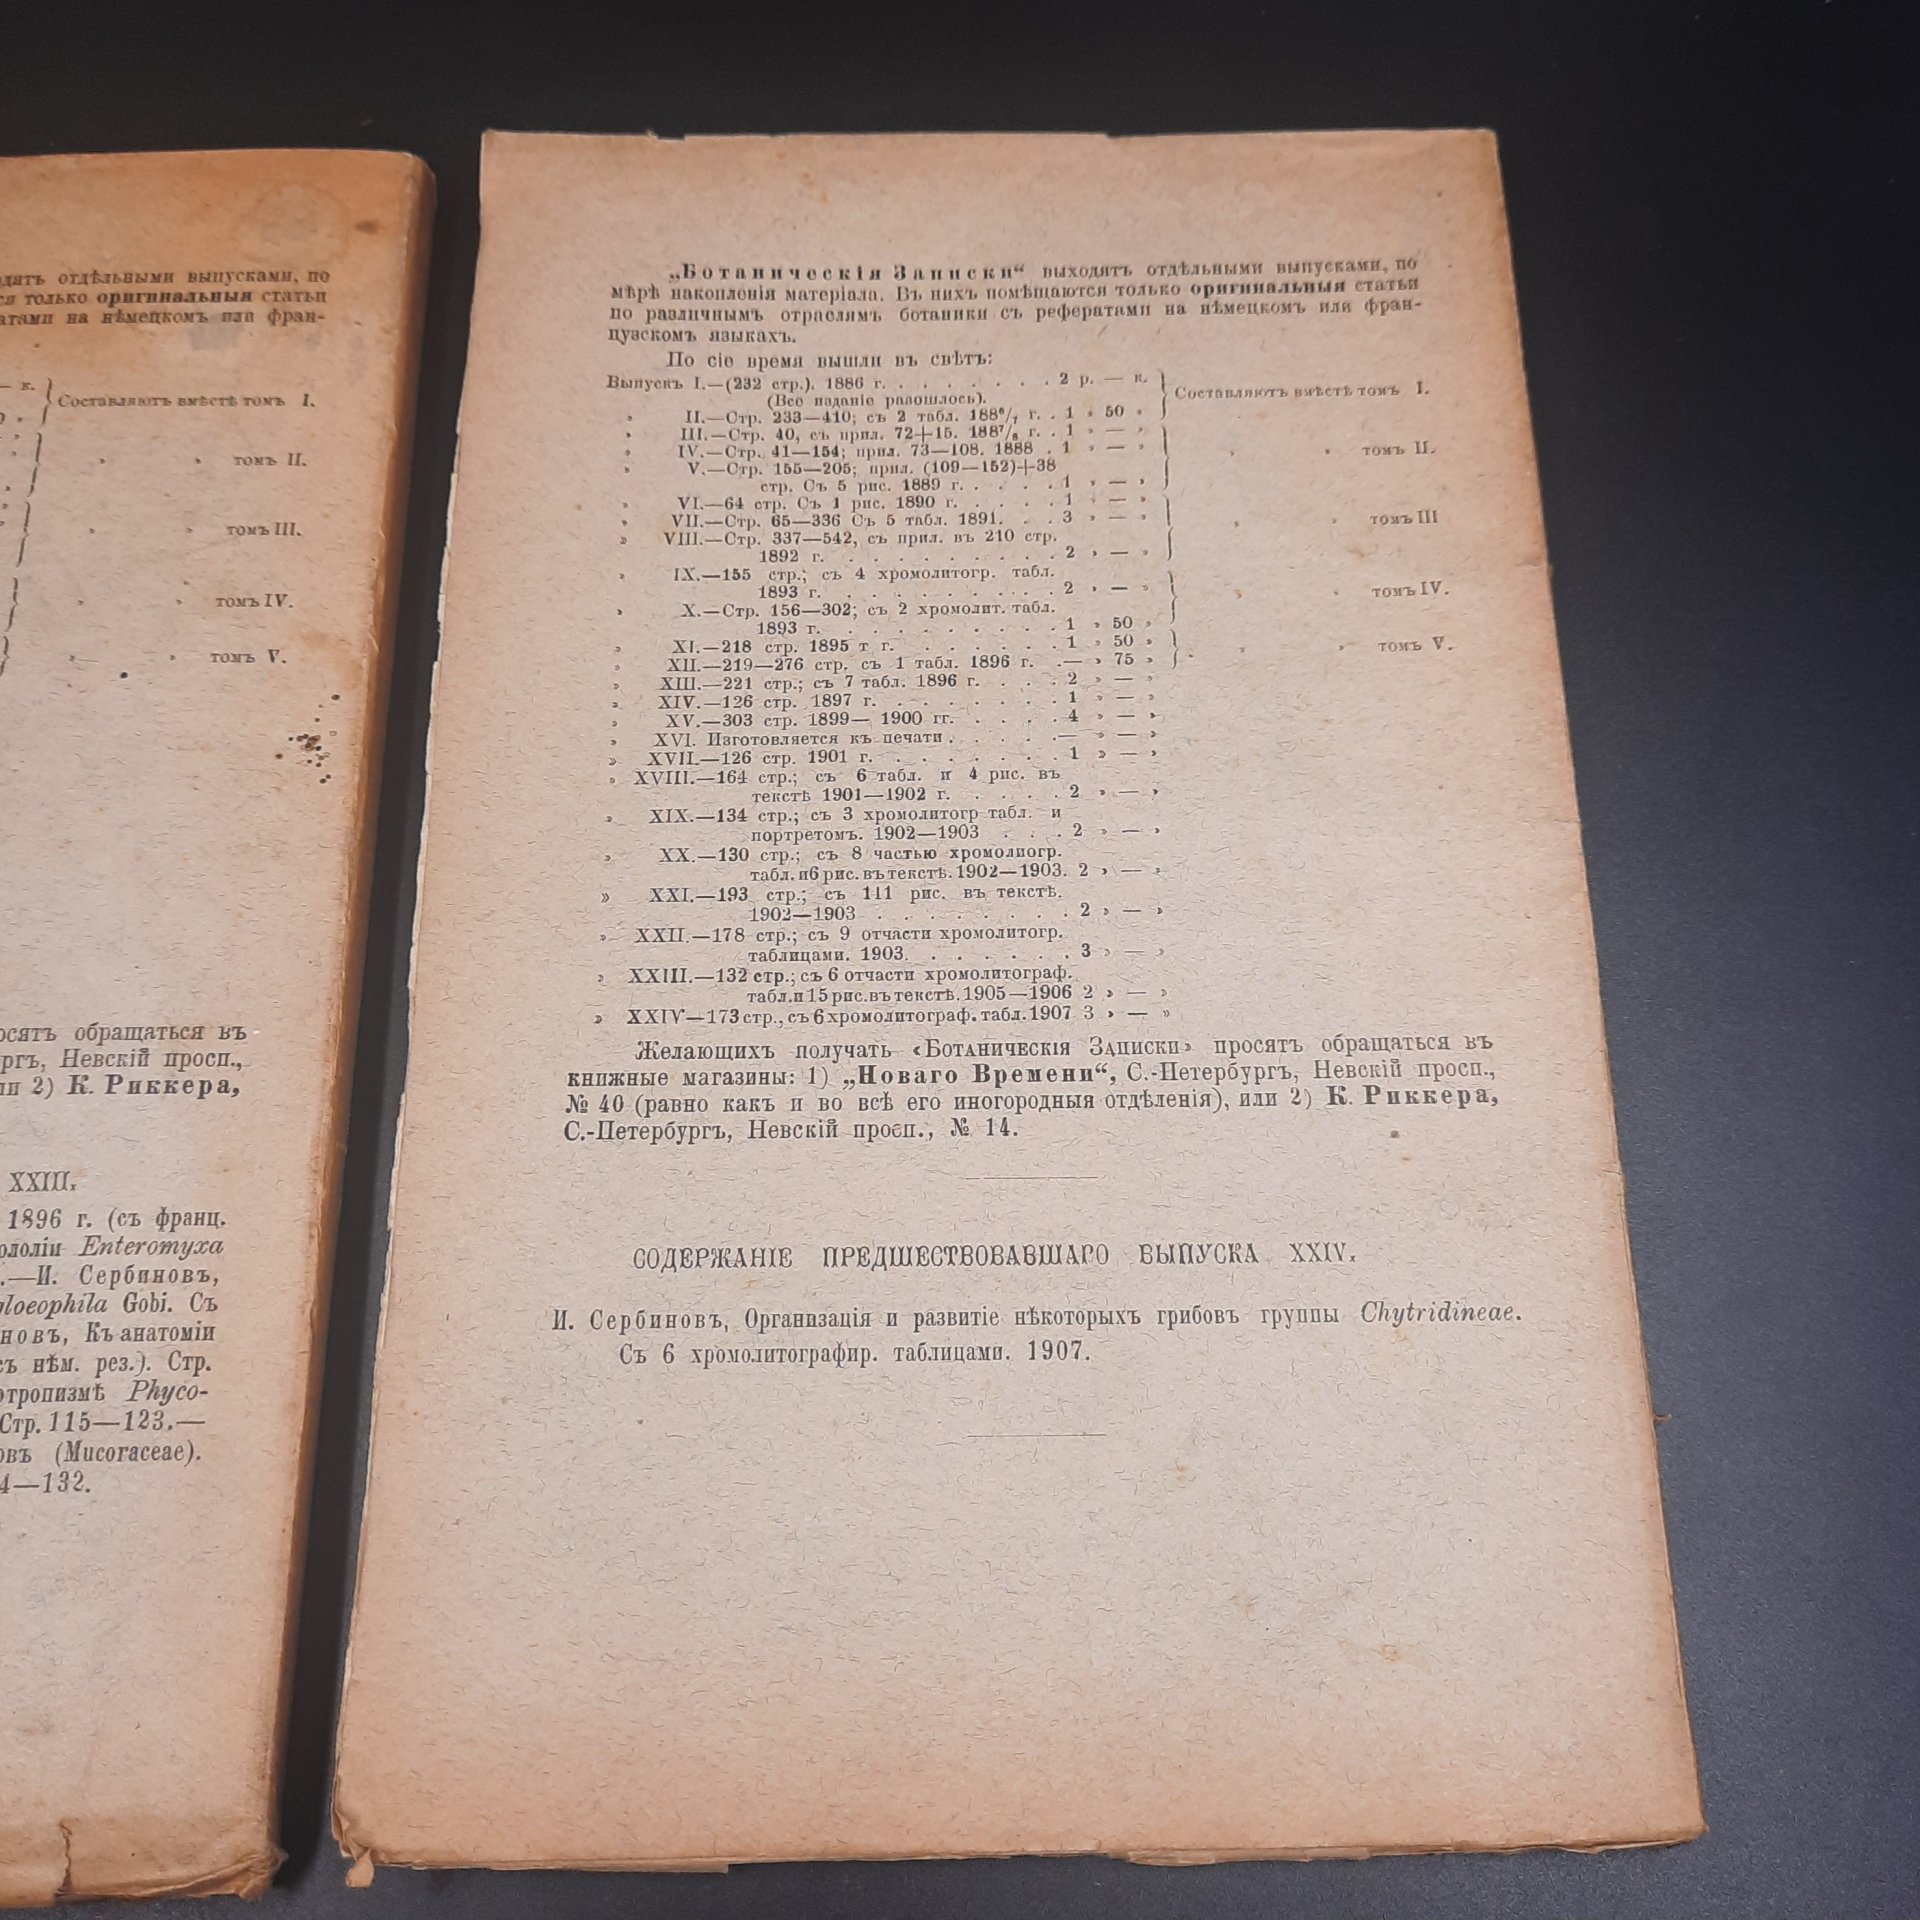 отдѣльными выпусками, по
только оригинальныя статьи
на нѣмецкомъ или фран-
— к.
Составляютъ вмѣстѣ томъ I.
» » томъ II.
» » томъ III.
» » томъ IV.
» » томъ V.
обращаться въ
Невскій просп.,
2) К. Риккера,
XXIII.
1896 г. (съ франц.
Enteromyxa
—И. Сербиновъ,
Gobi. Съ
Къ анатоміи
нѣм. рез.). Стр.
Phyco-
Стр. 115—123.—
(Mucoraceae).
—132.
„Ботаническія Записки“ выходятъ отдѣльными выпусками, по
мѣрѣ накопленія матеріала. Въ нихъ помѣщаются только оригинальныя статьи
по различнымъ отраслямъ ботаники съ рефератами на нѣмецкомъ или фран-
цузскомъ языкахъ.
По сіе время вышли въ свѣтъ:
Выпускъ I.—(232 стр.). 1886 г. . . . . . . . 2 р. — к.
(Все изданіе разошлось).
Составляютъ вмѣстѣ томъ I.
» II.—Стр. 233—410; съ 2 табл. 188⁶/₇ г. . 1 » 50 »
» III.—Стр. 40, съ прил. 72+15. 188⁷/₈ г. . 1 » — »
» IV.—Стр. 41—154; прил. 73—108. 1888 . 1 » — »
» » томъ II.
» V.—Стр. 155—205; прил. (109—152)+38
стр. Съ 5 рис. 1889 г. . . . . 1 » — »
» VI.—64 стр. Съ 1 рис. 1890 г. . . . . . 1 » — »
» VII.—Стр. 65—336 Съ 5 табл. 1891. . . 3 » — »
» » томъ III
» VIII.—Стр. 337—542, съ прил. въ 210 стр.
1892 г. . . . . . . . . . 2 » — »
» IX.—155 стр.; съ 4 хромолитогр. табл.
1893 г. . . . . . . . . . 2 » — »
» » томъ IV.
» X.—Стр. 156—302; съ 2 хромолит. табл.
1893 г. . . . . . . . . . 1 » 50 »
» XI.—218 стр. 1895 т г. . . . . . . . 1 » 50 »
» » томъ V.
» XII.—219—276 стр. съ 1 табл. 1896 г. .— » 75 »
» XIII.—221 стр.; съ 7 табл. 1896 г. . . . 2 » — »
» XIV.—126 стр. 1897 г. . . . . . . . . 1 » — »
» XV.—303 стр. 1899— 1900 гг. . . . . 4 » — »
» XVI. Изготовляется къ печати . . . . .— » — »
» XVII.—126 стр. 1901 г. . . . . . . . 1 » — »
» XVIII.—164 стр.; съ 6 табл. и 4 рис. въ
текстѣ 1901—1902 г. . . . . 2 » — »
» XIX.—134 стр.; съ 3 хромолитогр табл. и
портретомъ. 1902—1903 . . . 2 » — »
» XX.—130 стр.; съ 8 частью хромолиогр.
табл. и 6 рис. въ текстѣ. 1902—1903. 2 » — »
» XXI.—193 стр.; съ 111 рис. въ текстѣ.
1902—1903 . . . . . . . . 2 » — »
» XXII.—178 стр.; съ 9 отчасти хромолитогр.
таблицами. 1903. . . . . . . 3 » — »
» XXIII.—132 стр.; съ 6 отчасти хромолитограф.
табл. и 15 рис. въ текстѣ. 1905—1906 2 » — »
» XXIV—173 стр., съ 6 хромолитограф. табл. 1907 3 » — »
Желающихъ получать «Ботаническія Записки» просятъ обращаться въ
книжные магазины: 1) „Новаго Времени“, С.-Петербургъ, Невскій просп.,
№ 40 (равно какъ и во всѣ его иногородныя отдѣленія), или 2) К. Риккера,
С.-Петербургъ, Невскій просп., № 14.
СОДЕРЖАНІЕ ПРЕДШЕСТВОВАВШАГО ВЫПУСКА XXIV.
И. Сербиновъ, Организація и развитіе нѣкоторыхъ грибовъ группы Chytridineae.
Съ 6 хромолитографир. таблицами. 1907.